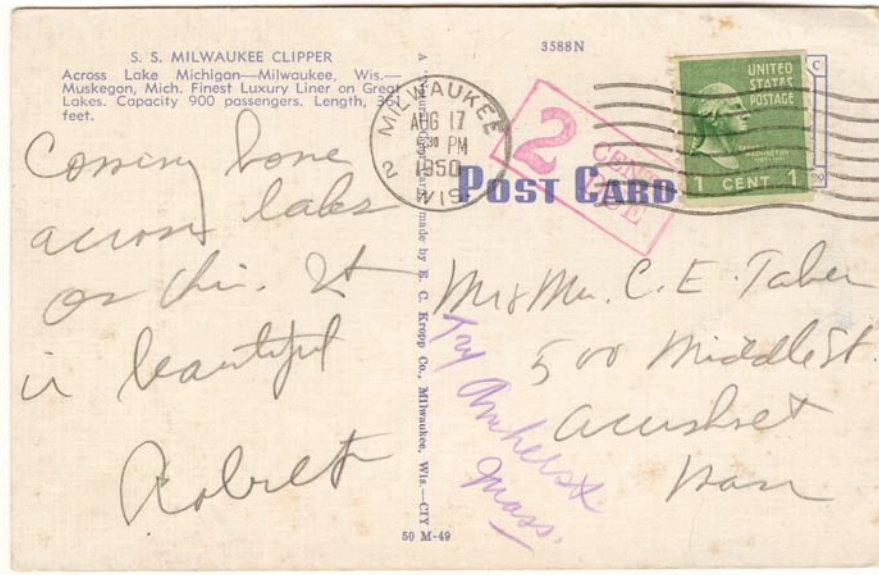 S. S. MILWAUKEE CLIPPER
Across Lake Michigan—Milwaukee, Wis.—
Muskegon, Mich. Finest Luxury Liner on Great
Lakes. Capacity 900 passengers. Length, 361
feet.
Coming home
across lake
on this. It
is beautiful
Robert
A "Natural Color" Card, made by E. C. Kropp Co., Milwaukee, Wis.—CIY
50 M-49
3588N
MILWAUKEE
AUG 17
30 PM
1950
2
WIS.
2 CENTS
DUE
POST CARD
UNITED
STATES
POSTAGE
1 CENT 1
Mr & Mrs. C. E. Taber
500 Middle St.
Acushnet
Mass
Try Amherst
Mass.